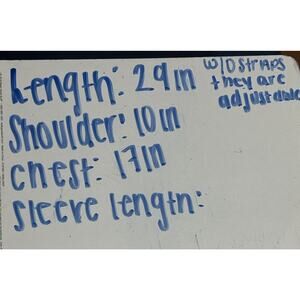 Length: 29in
Shoulder: 10in
Chest: 17in
Sleeve length:
W/O Straps
they are
adjustable